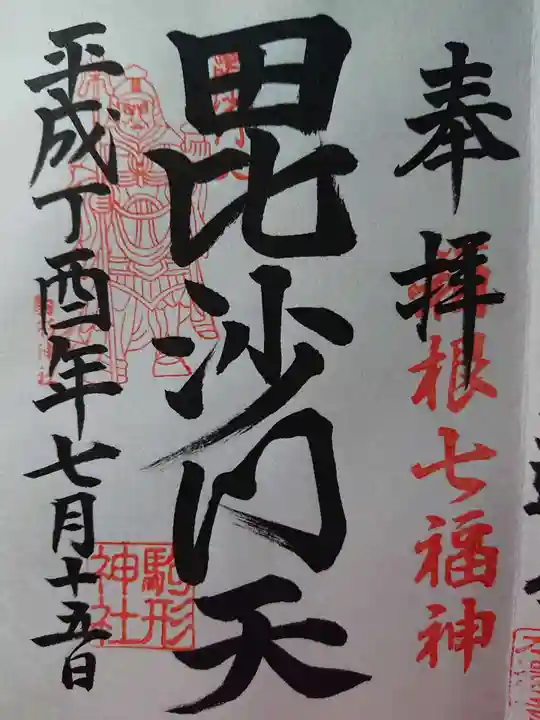 奉拝
箱根七福神
毘沙門天
駒形
神社
平成丁酉年七月十五日